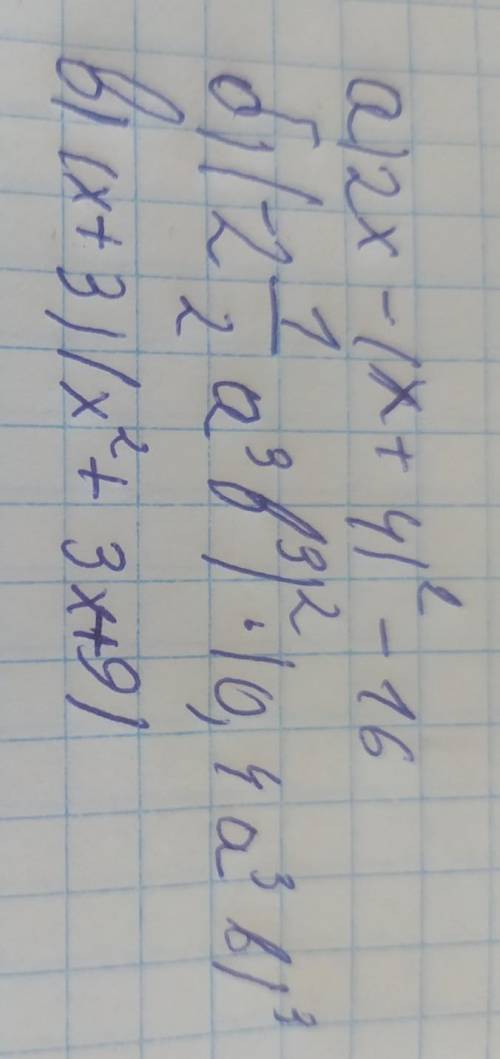 а) 2x - (x + 4)² - 16
б) (-2 1/2 a⁹ b⁹)² · (0,4 a³ b)³
в) (x + 3) (x² + 3x + 9)